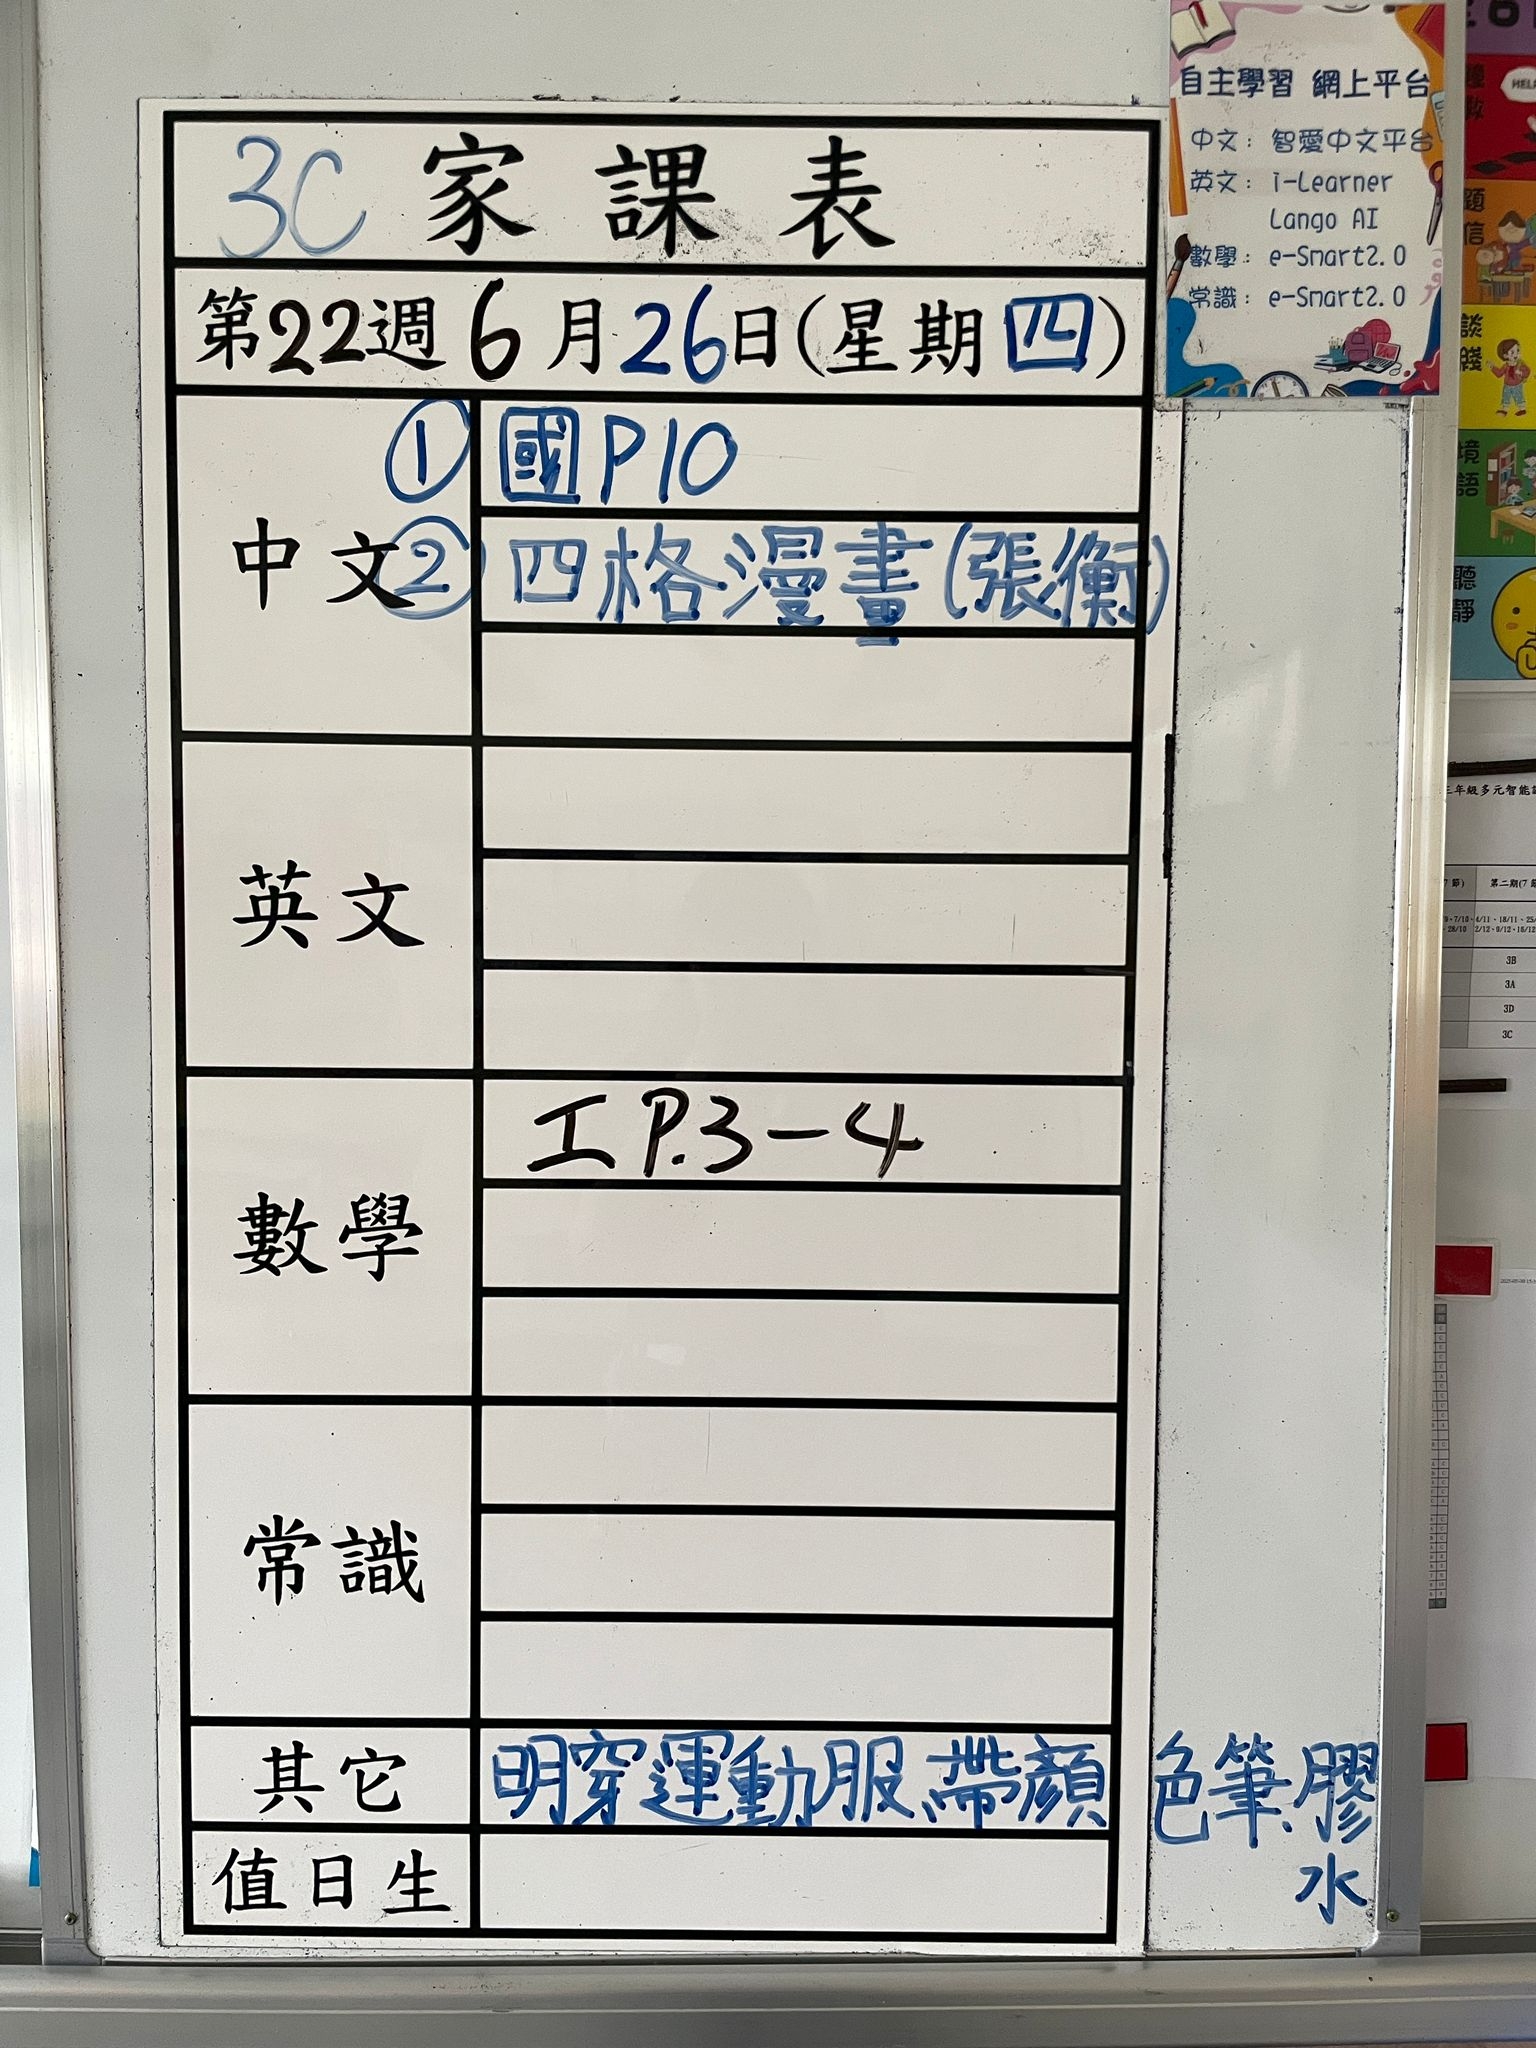 3C 家課表
第22週6月26日(星期四)
中文
① 國 P10
② 四格漫畫(張衡)
英文
數學
工 P.3-4
常識
其它
明穿運動服、帶顏色筆、膠水
值日生
自主學習 網上平台
中文: 智愛中文平台
英文: i-Learner
Lango AI
數學: e-Smart2.0
常識: e-Smart2.0
HEL
題
信
談
境
語
聽
靜
三年級多元智能
7 節)
第二期(7 節
7/10、4/11、18/11、25/
28/10
2/12、9/12、16/12
3B
3A
3D
3C